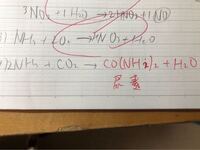 3NO₂ + 1H₂O → 2HNO₃ + 1NO
3) NH₃ + CO₂ → NO₃ + H₂O
) 2NH₃ + CO₂ → CO(NH₂)₂ + H₂O
尿素